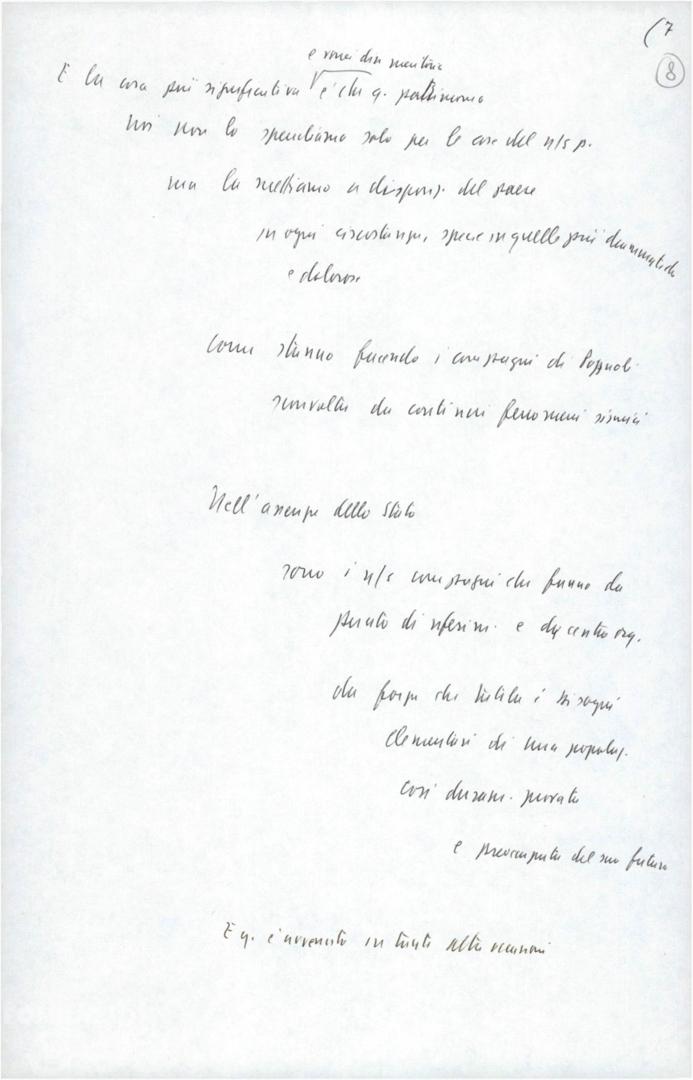 (7
8
e vorrei dire
E la cosa più significativa è che q. patrimonio
noi non lo spendiamo solo per le cose del n/s p.
ma lo mettiamo a disposiz. del paese
in ogni circostanza, specie in quelle più drammatiche
e dolorose
come stanno facendo i compagni di Pozzuoli
sconvolta da continui fenomeni sismici
Nell'assenza dello Stato
sono i n/s compagni che fanno da
punto di riferim. e da centro org.
da forza che tutela i bisogni
elementari di una popolaz.
così duram. provata
e preoccupata del suo futuro
E q. è avvenuto in tante altre occasioni